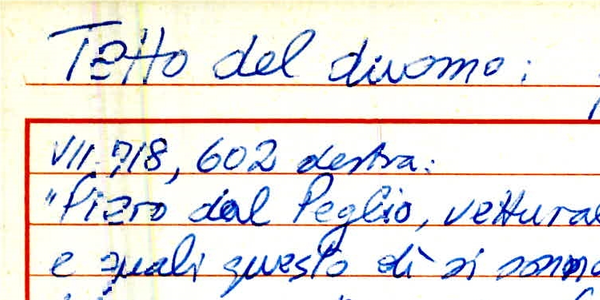 Tetto del duomo:
VII. 718, 602 destra:
"Piero dal Peglio, vettural
e quali questo dì si sonno